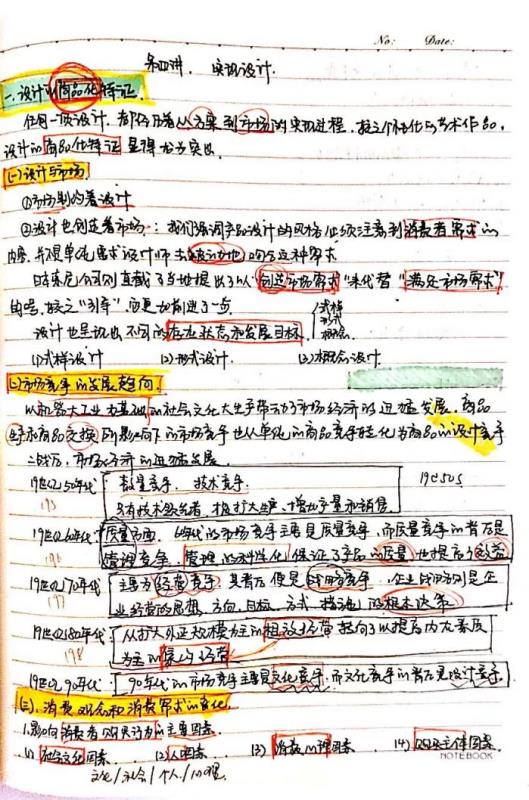 No:  Date:
第四讲. 实现设计.
一.设计的商品化特征.
任何一项设计.都经历着从方案到市场的实现过程,较之个性化的艺术作品,
设计的商品化特征显得尤为突出
(一)设计与市场.
①市场制约着设计
②设计也创造着市场:我们强调产品设计的风格必须注意到消费者需求的
内容,并不是单纯要求设计师去被动地响应这种需求
日本索尼公司则直截了当地提出了以"创造市场需求"来代替"满足市场需求"
的口号,较之"引导",应更加前进了一步.
设计也呈现出不同的存在状态和发展目标. 式样 形式 概念
(1)式样设计 (2)形式设计. (3)概念设计.
(二)市场竞争的发展趋向.
以机器大工业为基础的社会文化大生产带动了市场经济的迅猛发展.商品
生产和商品交换的影响下的市场竞争也从单纯的商品竞争转化为商品的设计竞争
二战后,市场经济的迅猛发展.
19世纪50年代: 数量竞争、技术竞争. 19c50s
195 只有技术领先者,扩大生产、增加产量和销售.
19世纪60年代: 质量方面. 60年代的市场竞争主要是质量竞争,而质量竞争的背后是
196 管理竞争,管理的科学化保证了产品的质量,也提高了效益
19世纪70年代: 主要为经营竞争,其背后便是战略竞争,企业战略则是企
197 业经营的思想、方向、目标、方式、措施的根本决策
19世纪80年代: 从扩大外延规模为主的粗放经营转向了以提高内在素质
198 为主的集约经营
19世纪90年代: 90年代的市场竞争主要是文化竞争,而文化竞争的背后是设计竞争.
(三).消费观念和消费需求的变化.
1.影响消费者购买行为的主要因素.
(1)社会文化因素. (2)个人因素. (3)消费心理因素. (4)购买主体因素.
文化/社会/个人/心理
NOTEBOOK